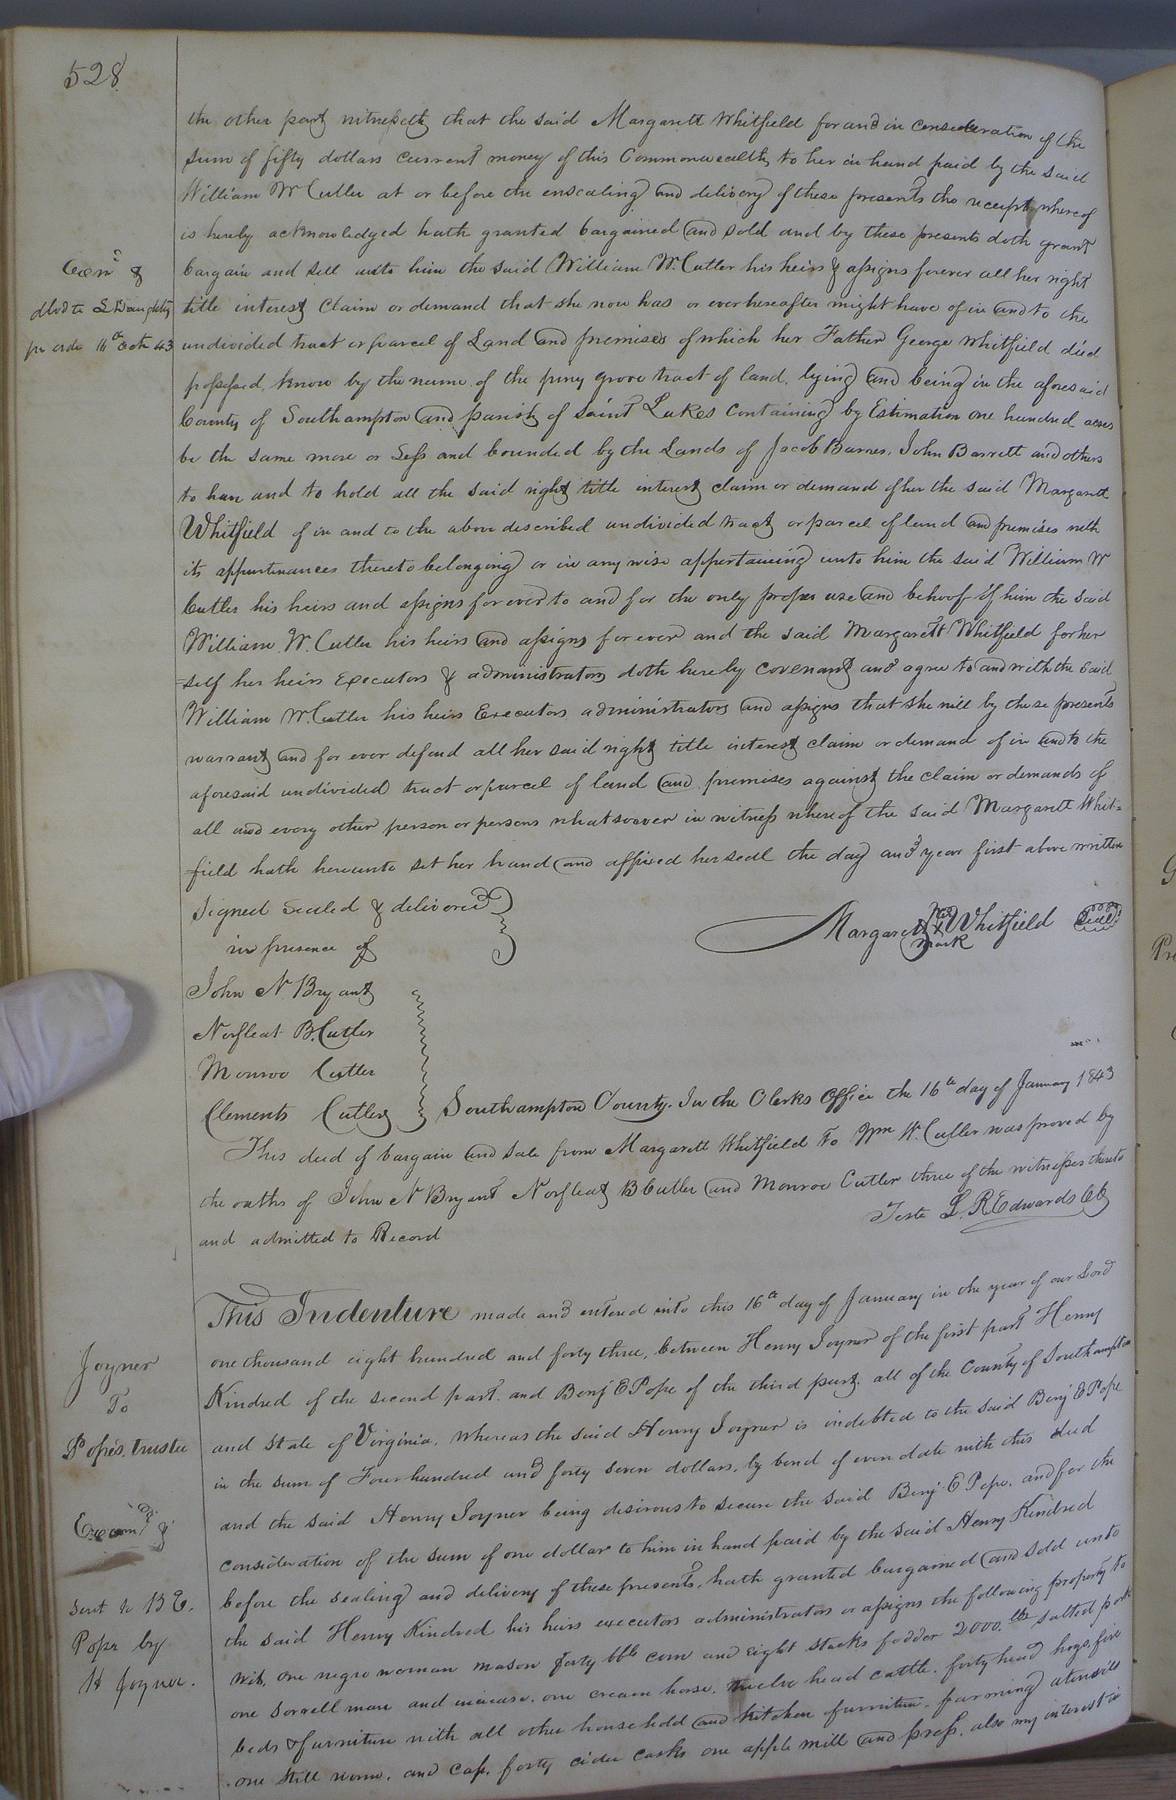 528
the other part witnesseth that the said Margarett Whitfield for and in consideration of the
sum of fifty dollars current money of this Commonwealth, to her in hand paid by the said
William W Cutler at or before the ensealing and delivery of these presents the receipt whereof
is hereby acknowledged hath granted bargained and sold and by these presents doth grant
bargain and sell unto him the said William W. Cutler his heirs & assigns forever all her right
title interest claim or demand that she now has or ever hereafter might have of in and to the
undivided tract or parcel of Land and premises of which her Father George Whitfield died
possessed, know by the name of the piny grove tract of land, lying and being in the aforesaid
County of Southampton and parish of Saint Lukes containing by Estimation one hundred acres
be the same more or less and bounded by the Lands of Jacob Barnes, John Barrett and others
to have and to hold all the said right title interest claim or demand of her the said Margarett
Whitfield of in and to the above described undivided tract or parcel of land and premises with
its appurtinances thereto belonging or in any wise appertaining unto him the said William W
Cutler his heirs and assigns for ever to and for the only proper use and behoof of him the said
William W. Cutler his heirs and assigns for ever and the said Margarett Whitfield for her
=self her heirs Executors & administrators doth hereby covenant and agree to and with the said
William W. Cutler his heirs Executors administrators and assigns that she will by these presents
warrant and for ever defend all her said right title interest claim or demand of in and to the
aforesaid undivided tract or parcel of land and premises against the claim or demands of
all and every other person or persons whatsoever in witness whereof the said Margarett Whit=
field hath hereunto set her hand and affixed her seal the day and year first above written
Signed sealed & delivered
in presence of
Margarett her X mark Whitfield Seal
John N Bryant
Norfleat B. Cutler
Monroe Cutler
Clements Cutler
Southampton County. In the Clerks Office the 16th day of January 1843
This deed of bargain and sale from Margarett Whitfield To Wm W. Cutler was proved by
the oaths of John N Bryant Norfleat B Cutler and Monroe Cutler three of the witnesses thereto
and admitted to Record
Teste L. R Edwards Clk
Exnd &
dlvd to
pr order 16th Octr 43
This Indenture made and entered into this 16th day of January in the year of our Lord
one thousand eight hundred and forty three, between Henry Joyner of the first part Henry
Kindred of the second part, and Benj E Pope of the third part, all of the County of Southampton
and State of Virginia, Whereas the said Henry Joyner is indebted to the said Benj E Pope
in the sum of Four hundred and forty seven dollars, by bond of even date with this deed
and the said Henry Joyner being desirous to secure the said Benj E Pope, and for the
consideration of the sum of one dollar to him in hand paid by the said Henry Kindred
before the sealing and delivery of these presents, hath granted bargained and sold unto
the said Henry Kindred his heirs executors administrators or assigns the following property to
wit, one negro woman Mason forty bbls corn and eight stacks fodder 2000. lbs salted pork
one sorrell mare and increase, one cream horse, twelve head cattle, forty head hogs, five
beds & furniture with all other household and kitchen furniture, farming utensils
one still worm, and cap, forty cider casks one apple mill and press, also my interest in
Joyner
To
Pope's, trustee
Exmnd &
sent to B E.
Pope by
H Joyner.